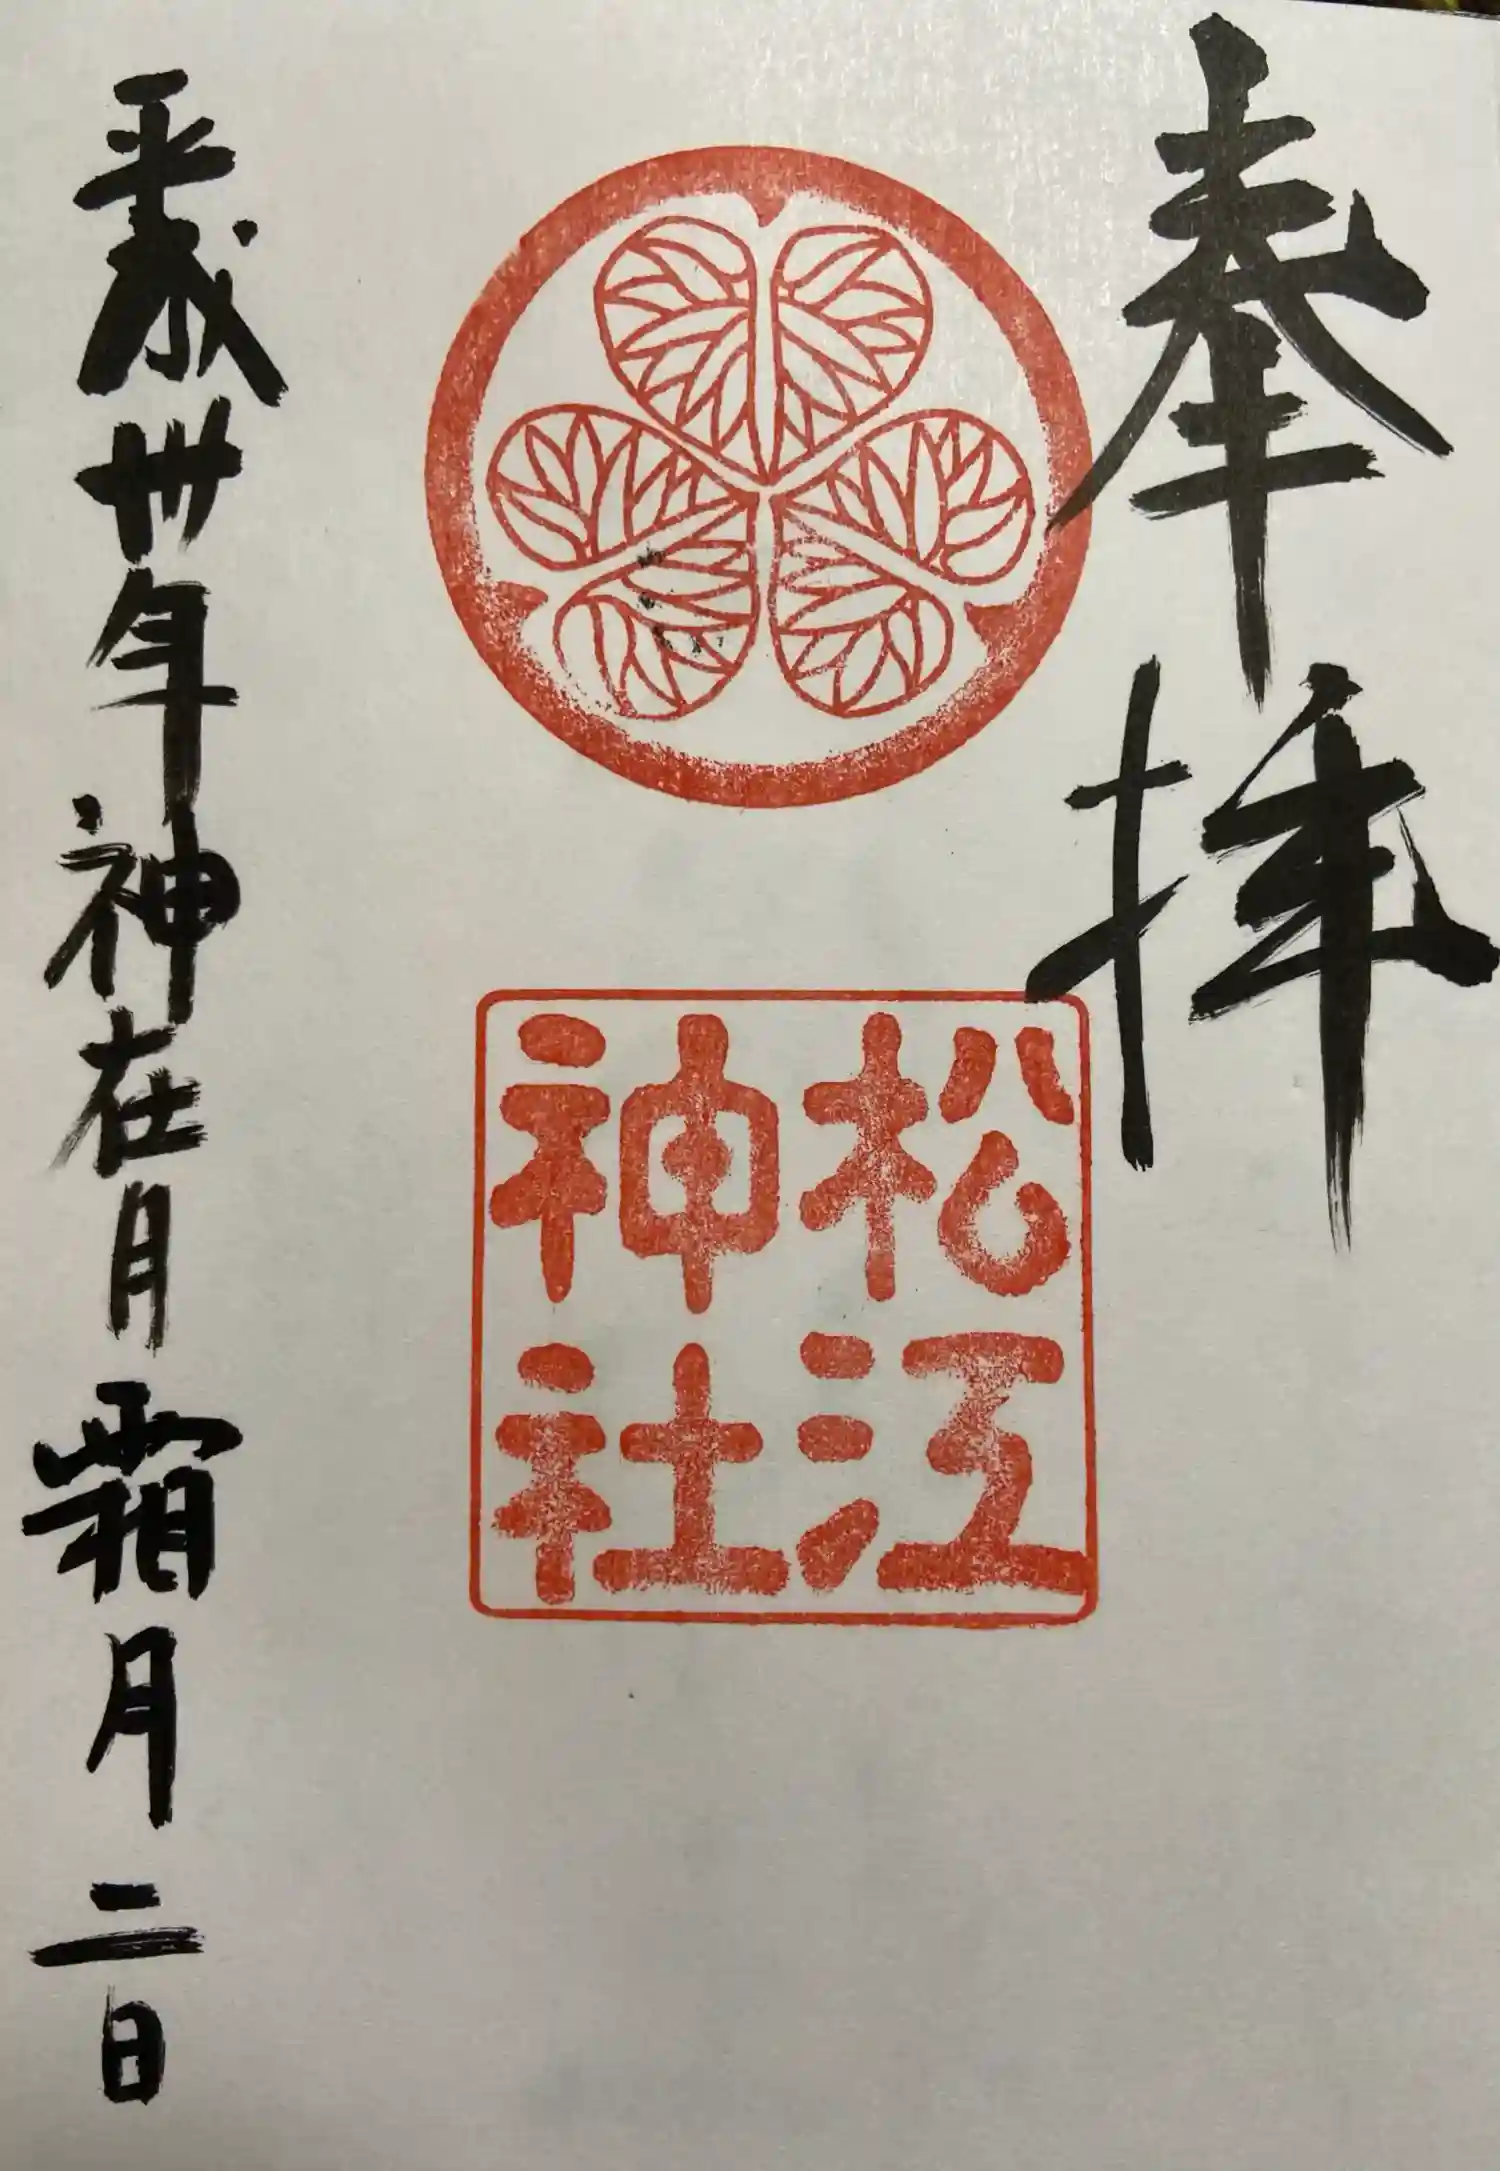 奉拝
松江
神社
平成卅年神在月霜月二日